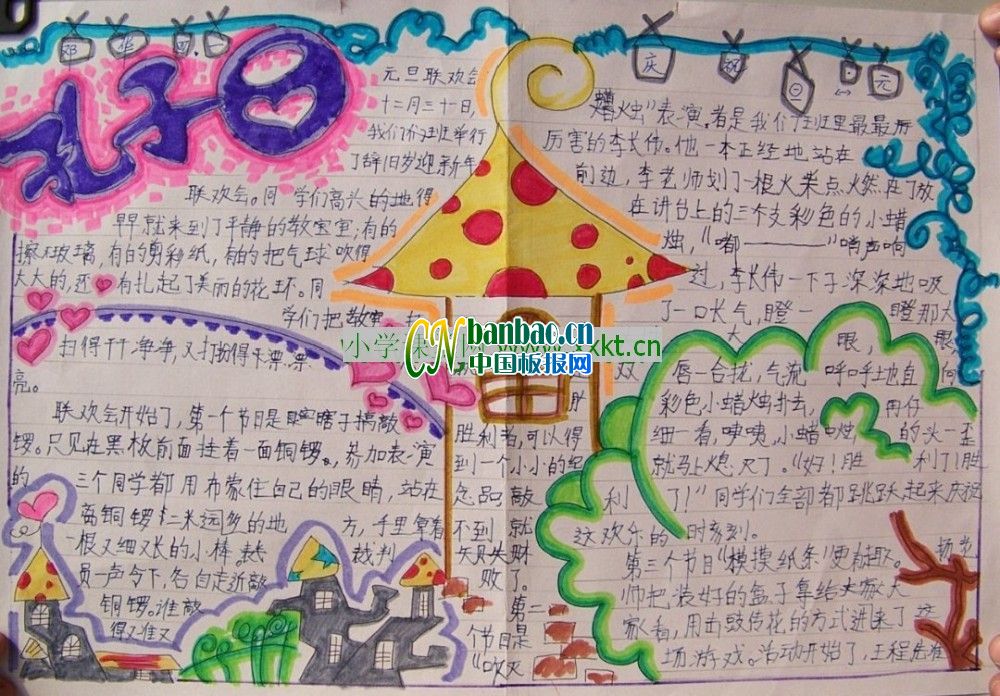 邓华
庆祝
元旦
元旦联欢会
十二月三十一日,
我们班举行
了辞旧岁迎新年
联欢会。同学们高兴的地得
早就来到了平静的教室室;有的
擦玻璃,有的剪彩纸,有的把气球吹得
大大的,还有扎起了美丽的花环。同
学们把教室
扫得干净净又打扮得
亮。
联欢会开始了,第一个节目是瞎子搞敲
锣。只见在黑板前面挂着一面铜锣。参加表演
的三个同学都用布蒙住自己的眼睛,站在
离铜锣二米远的地方,手里拿着
一根又细又长的小棒。裁判
员一声令下,各自走近敲
铜锣。谁敲
得又准又
胜利者,可以得
到一个小小的纪
念品敲
不到就
失败
了。
第二
个节目是
“吹灭
蜡烛”表演。者是我们班里最最
厉害的李长伟。他一本正经地站在
前边,李老师划了一根火柴点火燃在了放
在讲台上的三个支彩色的小蜡
烛,“嘟————”哨声响
过,李长伟一下子深深地吸
了一口长气,瞪一瞪那大
大眼,眼
双唇一合拢,气流呼呼地直向
彩色小蜡烛扑去,仔
细一看,咦咦,小蜡的头一歪
就马上熄灭了。“好!胜利了!胜
利了!”同学们全部都跳跃起来庆祝
这欢乐的时刻。
第三个节目“摸摸纸条”更
师把装好的盒子拿给大家大
家看,用击鼓传花的方式进来了这
场游戏。活动开始了,王程
小学课 网 www.xkt.cn
CN banbao.cn
中国板报网